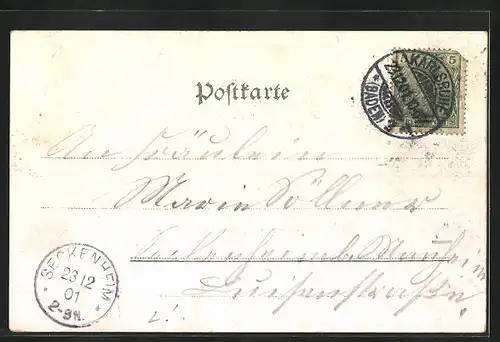 Postkarte
KARLSRUHE
(BADEN)
5
5
An Fräulein
Marie Söllner
Luisenstraße
SECKENHEIM
23 12
01
2-3N.